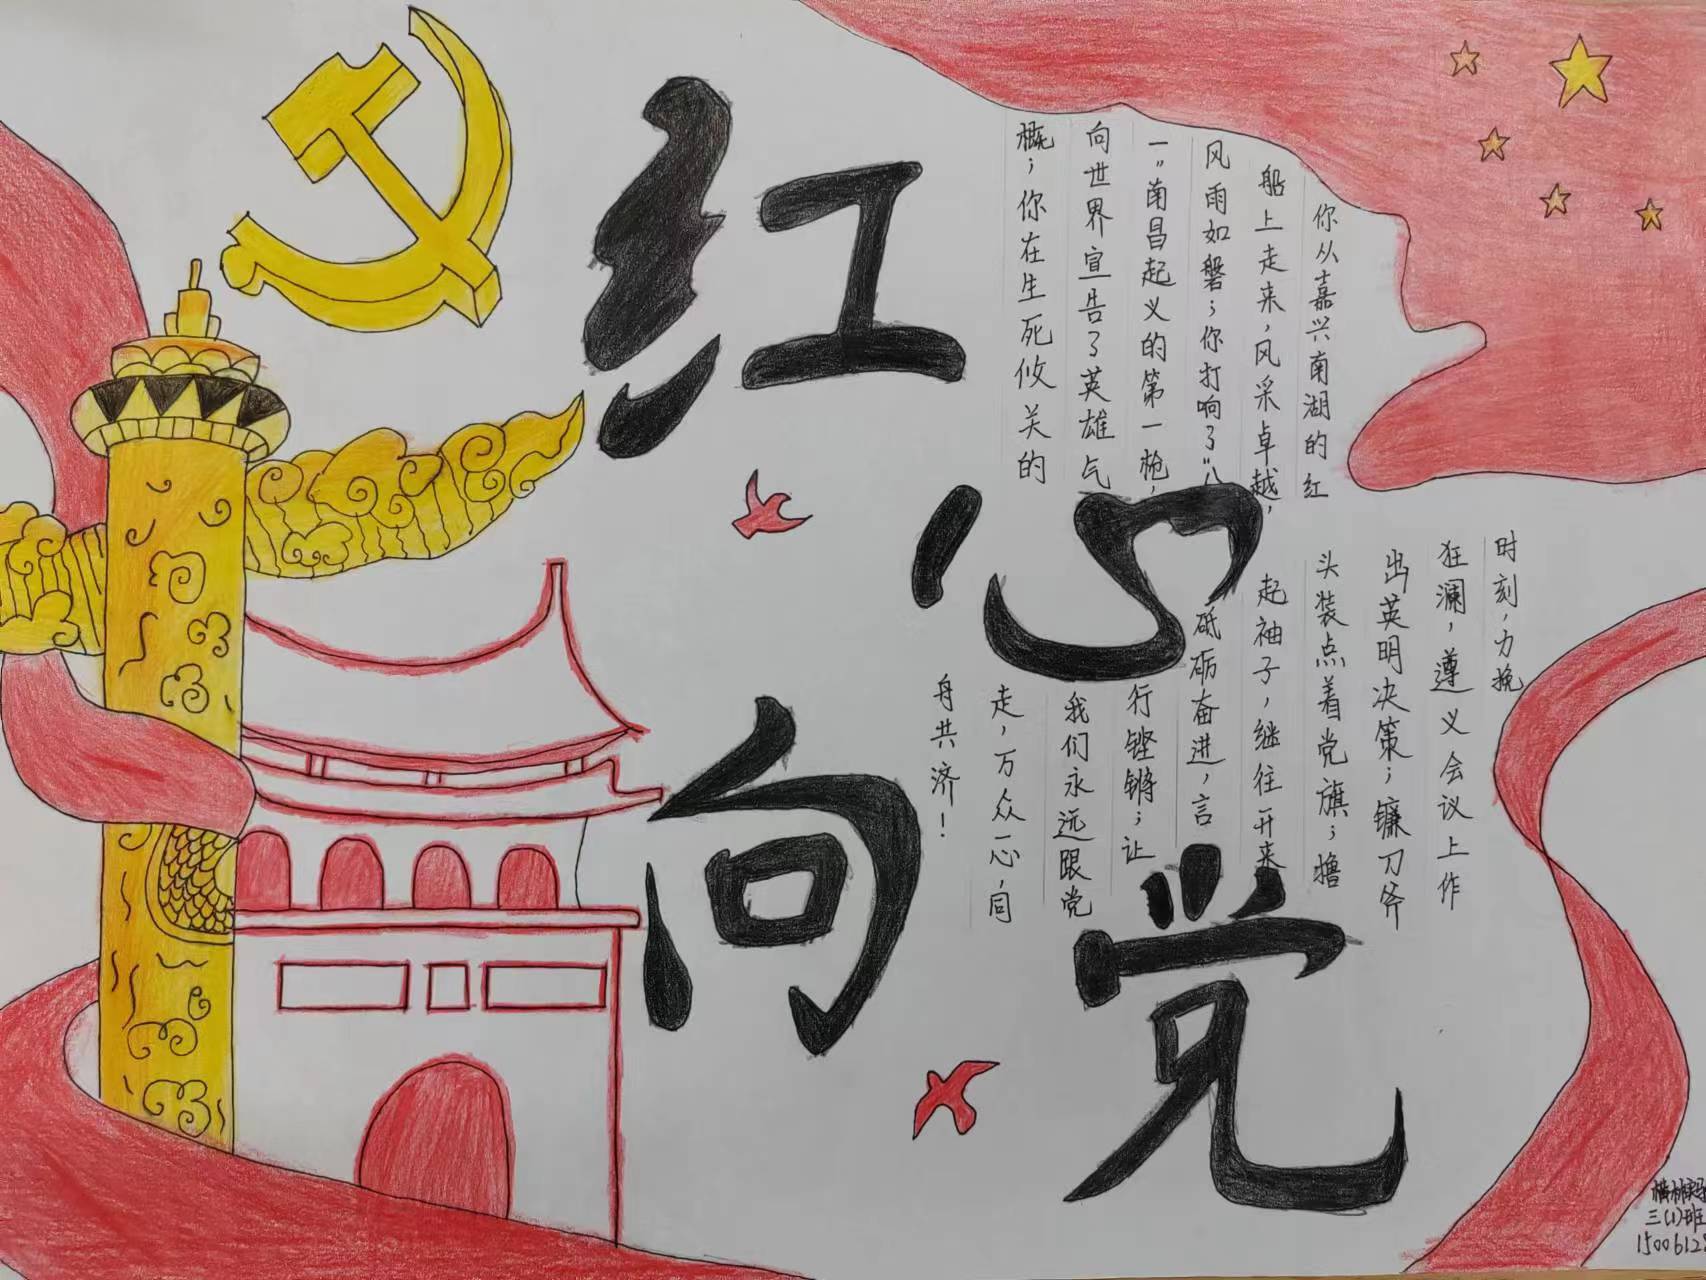 红
心
向
党
你从嘉兴南湖的红
船上走来，风采卓越，
风雨如磐；你打响了“八
一”南昌起义的第一枪，
向世界宣告了英雄气
概；你在生死攸关的
时刻，力挽
狂澜，遵义会议上作
出英明决策；镰刀斧
头装点着党旗；撸
起袖子，继往开来
砥砺奋进，言
行铿锵；让
我们永远跟党
走，万众一心，同
舟共济！
三(1)班
1500612